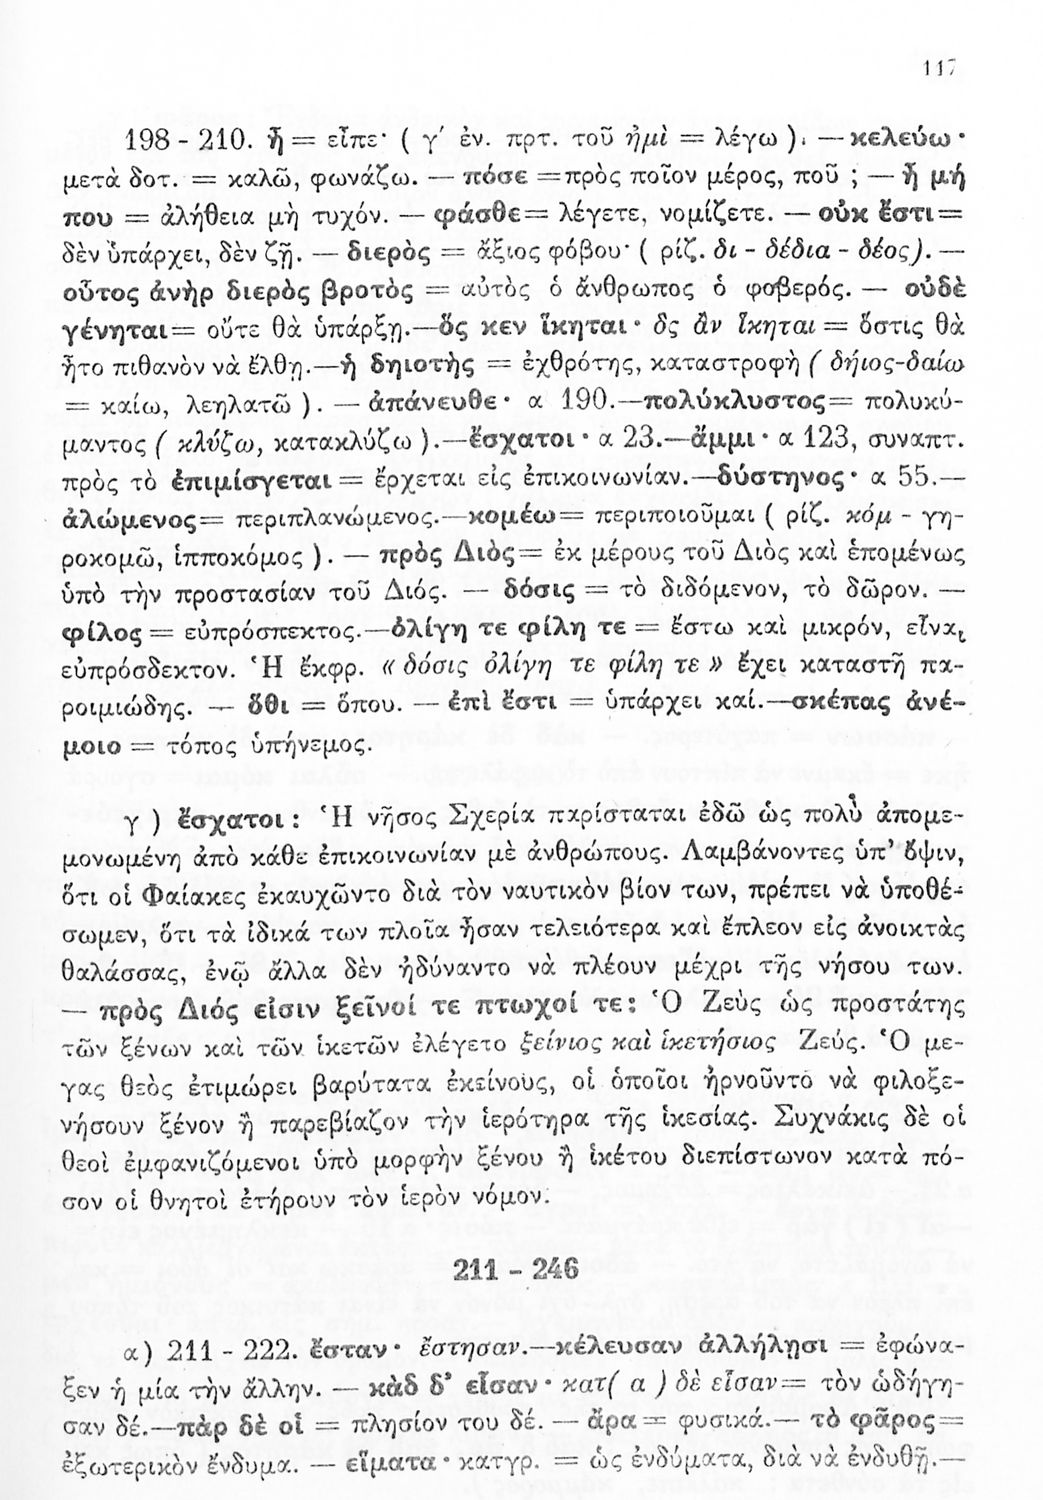 117
198 - 210. ἦ = εἶπε· ( γ′ ἐν. πρτ. τοῦ ἠμὶ = λέγω ). — κελεύω ·
μετὰ δοτ. = καλῶ, φωνάζω. — πόσε = πρὸς ποῖον μέρος, ποῦ ; — ἦ μή
που = ἀλήθεια μὴ τυχόν. — φάσθε = λέγετε, νομίζετε. — οὐκ ἔστι =
δὲν ὑπάρχει, δὲν ζῇ. — διερὸς = ἄξιος φόβου· ( ρίζ. δι - δέδια - δέος). —
οὗτος ἀνὴρ διερὸς βροτὸς = αὐτὸς ὁ ἄνθρωπος ὁ φοβερός. — οὐδὲ
γένηται = οὔτε θὰ ὑπάρξῃ. — ὅς κεν ἵκηται · ὃς ἂν ἵκηται = ὅστις θὰ
ἦτο πιθανὸν νὰ ἔλθῃ. — ἡ δηιοτὴς = ἐχθρότης, καταστροφὴ ( δήιος-δαίω
= καίω, λεηλατῶ ). — ἀπάνευθε · α 190. — πολύκλυστος = πολυκύ-
μαντος ( κλύζω, κατακλύζω ). — ἔσχατοι · α 23. — ἄμμι · α 123, συναπτ.
πρὸς τὸ ἐπιμίσγεται = ἔρχεται εἰς ἐπικοινωνίαν. — δύστηνος · α 55. —
ἀλώμενος = περιπλανώμενος. — κομέω = περιποιοῦμαι ( ρίζ. κόμ - γη-
ροκομῶ, ἱπποκόμος ). — πρὸς Διὸς = ἐκ μέρους τοῦ Διὸς καὶ ἑπομένως
ὑπὸ τὴν προστασίαν τοῦ Διός. — δόσις = τὸ διδόμενον, τὸ δῶρον. —
φίλος = εὐπρόσπεκτος. — ὀλίγη τε φίλη τε = ἔστω καὶ μικρόν, εἶναι
εὐπρόσδεκτον. Ἡ ἔκφρ. « δόσις ὀλίγη τε φίλη τε » ἔχει καταστῆ πα-
ροιμιώδης. — ὅθι = ὅπου. — ἐπὶ ἔστι = ὑπάρχει καί. — σκέπας ἀνέ-
μοιο = τόπος ὑπήνεμος.
γ ) ἔσχατοι : Ἡ νῆσος Σχερία παρίσταται ἐδῶ ὡς πολὺ ἀπομε-
μονωμένη ἀπὸ κάθε ἐπικοινωνίαν μὲ ἀνθρώπους. Λαμβάνοντες ὑπ’ ὄψιν,
ὅτι οἱ Φαίακες ἐκαυχῶντο διὰ τὸν ναυτικὸν βίον των, πρέπει νὰ ὑποθέ-
σωμεν, ὅτι τὰ ἰδικά των πλοῖα ἦσαν τελειότερα καὶ ἔπλεον εἰς ἀνοικτὰς
θαλάσσας, ἐνῷ ἄλλα δὲν ἠδύναντο νὰ πλέουν μέχρι τῆς νήσου των.
— πρὸς Διός εἰσιν ξεῖνοί τε πτωχοί τε : Ὁ Ζεὺς ὡς προστάτης
τῶν ξένων καὶ τῶν ἱκετῶν ἐλέγετο ξείνιος καὶ ἱκετήσιος Ζεύς. Ὁ με-
γας θεὸς ἐτιμώρει βαρύτατα ἐκείνους, οἱ ὁποῖοι ἠρνοῦντο νὰ φιλοξε-
νήσουν ξένον ἢ παρεβίαζον τὴν ἱερότηρα τῆς ἱκεσίας. Συχνάκις δὲ οἱ
θεοὶ ἐμφανιζόμενοι ὑπὸ μορφὴν ξένου ἢ ἱκέτου διεπίστωνον κατὰ πό-
σον οἱ θνητοὶ ἐτήρουν τὸν ἱερὸν νόμον.
211 - 246
α) 211 - 222. ἔσταν · ἔστησαν. — κέλευσαν ἀλλήλῃσι = ἐφώνα-
ξεν ἡ μία τὴν ἄλλην. — κὰδ δ’ εἷσαν · κατ( α ) δὲ εἷσαν = τὸν ὡδήγη-
σαν δέ. — πὰρ δὲ οἱ = πλησίον του δέ. — ἄρα = φυσικά. — τὸ φᾶρος =
ἐξωτερικὸν ἔνδυμα. — εἵματα · κατγρ. = ὡς ἐνδύματα, διὰ νὰ ἐνδυθῇ. —